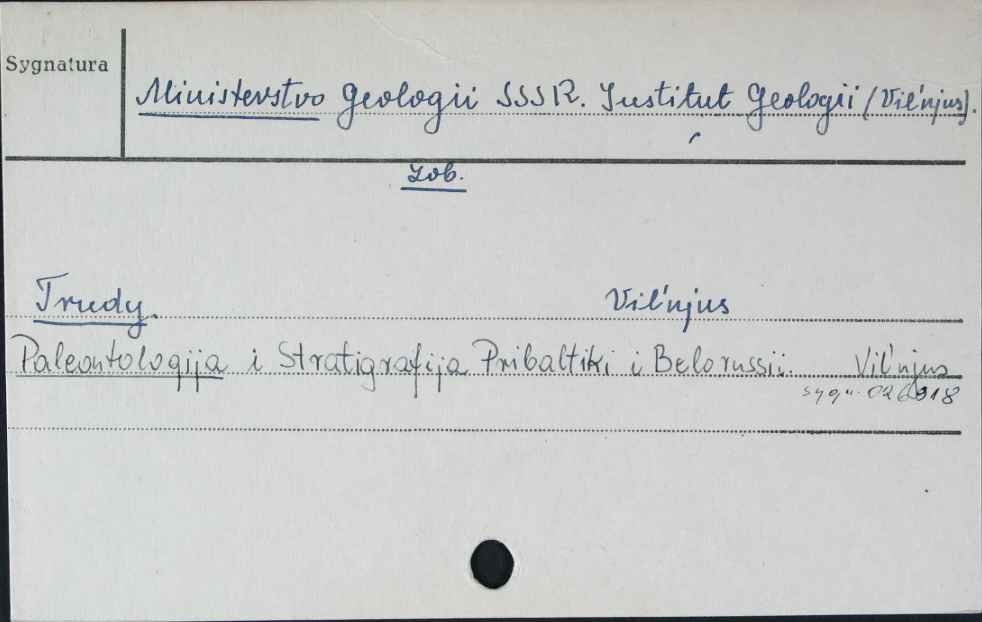 Sygnatura
Ministerstvo Geologii SSSR. Institut Geologii (Vil'njus).
zob.
Trudy. Vil'njus
Paleontologija i Stratigrafija Pribaltiki i Belorussii. Vil'njus
sygn.